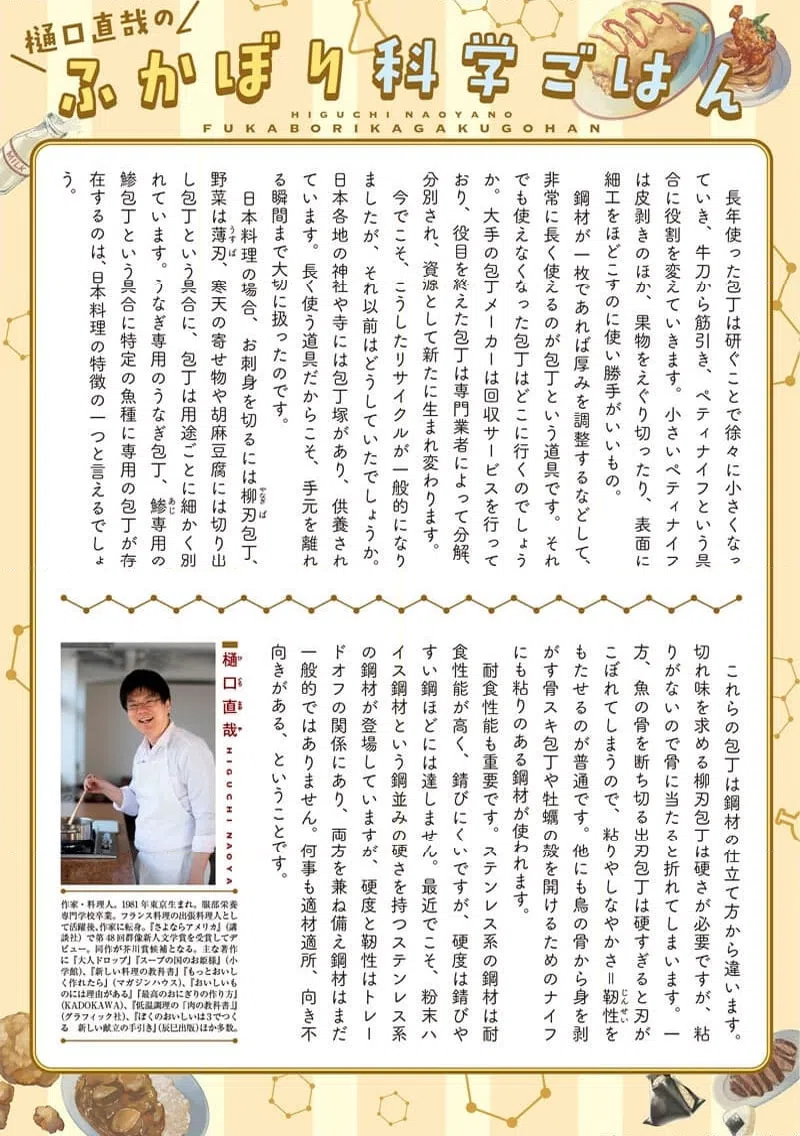 樋口直哉の
ふかぼり科学ごはん
HIGUCHI NAOYANO
FUKABORIKAGAKUGOHAN
MILK
長年使った包丁は研ぐことで徐々に小さくなっ
ていき、牛刀から筋引き、ペティナイフという具
合に役割を変えていきます。小さいペティナイフ
は皮剥きのほか、果物をえぐり切ったり、表面に
細工をほどこすのに使い勝手がいいもの。
鋼材が一枚であれば厚みを調整するなどして、
非常に長く使えるのが包丁という道具です。それ
でも使えなくなった包丁はどこに行くのでしょう
か。大手の包丁メーカーは回収サービスを行って
おり、役目を終えた包丁は専門業者によって分解、
分別され、資源として新たに生まれ変わります。
今でこそ、こうしたリサイクルが一般的になり
ましたが、それ以前はどうしていたでしょうか。
日本各地の神社や寺には包丁塚があり、供養され
ています。長く使う道具だからこそ、手元を離れ
る瞬間まで大切に扱ったのです。
日本料理の場合、お刺身を切るには柳刃包丁、
やなぎば
野菜は薄刃、寒天の寄せ物や胡麻豆腐には切り出
うすば
し包丁という具合に、包丁は用途ごとに細かく別
れています。うなぎ専用のうなぎ包丁、鯵専用の
あじ
鯵包丁という具合に特定の魚種に専用の包丁が存
在するのは、日本料理の特徴の一つと言えるでしょ
う。
これらの包丁は鋼材の仕立て方から違います。
切れ味を求める柳刃包丁は硬さが必要ですが、粘
りがないので骨に当たると折れてしまいます。一
方、魚の骨を断ち切る出刃包丁は硬すぎると刃が
こぼれてしまうので、粘りやしなやかさ＝靭性を
じんせい
もたせるのが普通です。他にも鳥の骨から身を剥
がす骨スキ包丁や牡蠣の殻を開けるためのナイフ
にも粘りのある鋼材が使われます。
耐食性能も重要です。ステンレス系の鋼材は耐
食性能が高く、錆びにくいですが、硬度は錆びや
すい鋼ほどには達しません。最近でこそ、粉末ハ
イス鋼材という鋼並みの硬さを持つステンレス系
の鋼材が登場していますが、硬度と靭性はトレー
ドオフの関係にあり、両方を兼ね備え鋼材はまだ
一般的ではありません。何事も適材適所、向き不
向きがある、ということです。
樋口直哉
ひぐちなおや
HIGUCHI NAOYA
作家・料理人。1981年東京生まれ。服部栄養
専門学校卒業。フランス料理の出張料理人とし
て活躍後、作家に転身。『さよならアメリカ』(講
談社)で第48回群像新人文学賞を受賞してデ
ビュー。同作が芥川賞候補となる。主な著作
に『大人ドロップ』『スープの国のお姫様』(小
学館)、『新しい料理の教科書』『もっとおいし
く作れたら』(マガジンハウス)、『おいしいも
のには理由がある』『最高のおにぎりの作り方』
(KADOKAWA)、『低温調理の「肉の教科書』
(グラフィック社)、『ぼくのおいしいは3でつく
る　新しい献立の手引き』(辰巳出版)ほか多数。